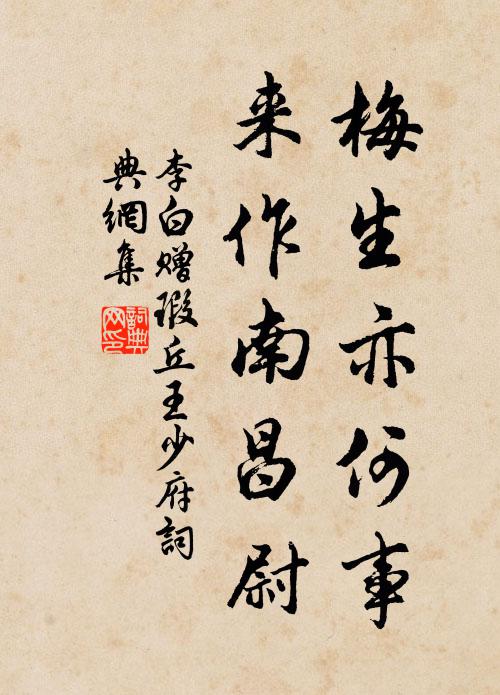 梅生亦何事
来作南昌尉
李白赠瑕丘王少府詞
典網集
詞典網印